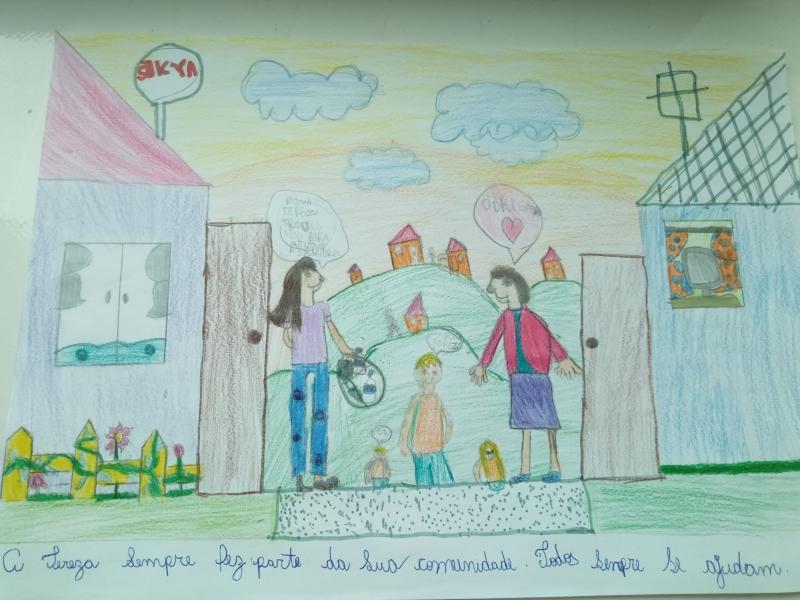 SKYA
DONA
TEREZA
TROUXE
PARA
OBRIGADA
A Tereza sempre fez parte da sua comunidade. Todos sempre se ajudam.